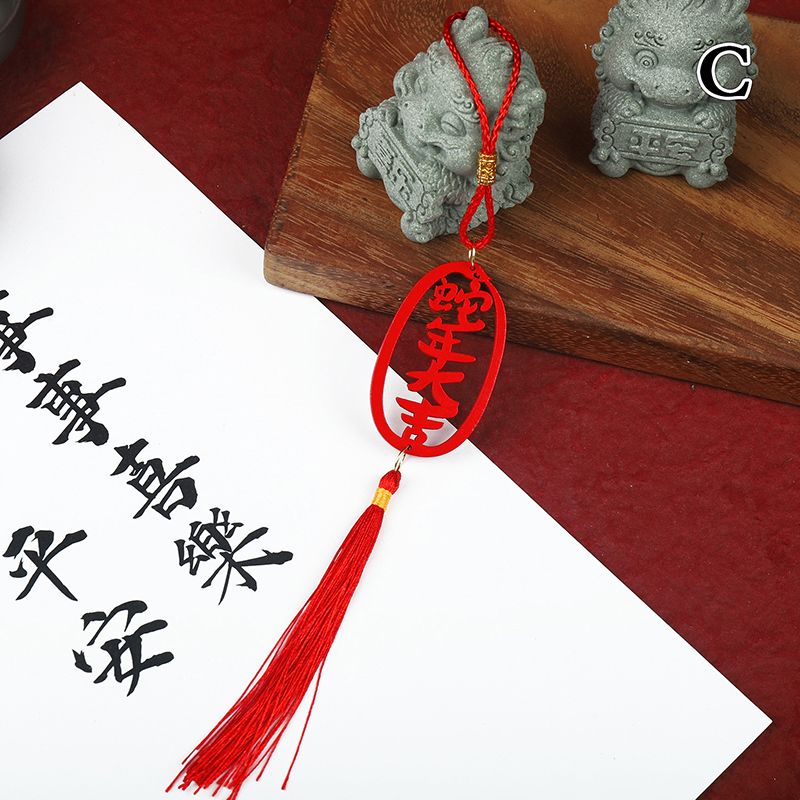 C
蛇年大吉
事事喜樂
平安